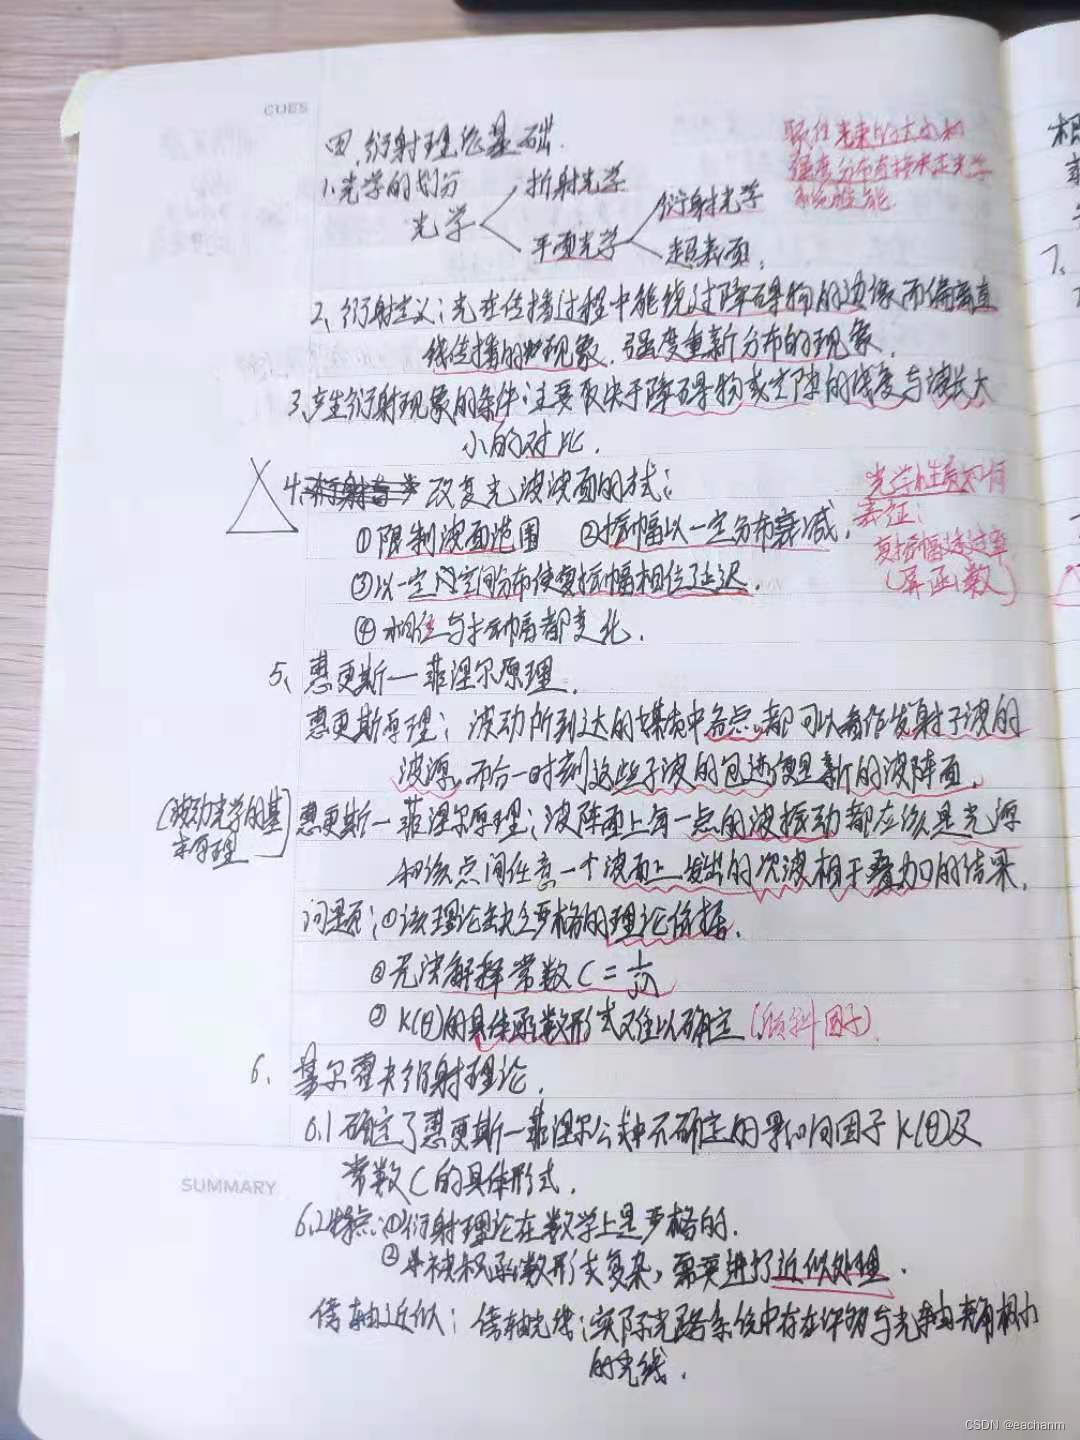 CUES
四、衍射理论基础.
1.光学的划分
折射光学
光学
平面光学
衍射光学
超表面.
强度分布直接决定光学
系统性能
2、衍射定义：光在传播过程中能绕过障碍物的边缘而偏离直
线传播的现象.强度重新分布的现象.
3、产生衍射现象的条件：主要取决于障碍物或空隙的线度与波长大
小的对比.
4、改变光波波面的方式：
①限制波面范围 ②振幅以一定分布衰减.
③以一定空间分布使复振幅相位延迟.
④相位与振幅都变化.
光学性质不同
表征：
复振幅透过率
(屏函数)
5、惠更斯一菲涅尔原理.
惠更斯原理：波动所到达的媒质中各点都可以看作发射子波的
波源,而后一时刻这些子波的包迹便是新的波阵面.
(波动光学的基
本原理
惠更斯一菲涅尔原理：波阵面上每一点的波振动都应该是光源
和该点间任意一个波面上发出的次波相干叠加的结果.
问题：①该理论缺乏严格的理论依据.
②无法解释常数C=1/jλ
③K(θ)的具体函数形式难以确定(倾斜因子).
6、基尔霍夫衍射理论.
6.1确定了惠更斯一菲涅尔公式中不确定的因子K(θ)及
常数C的具体形式.
6.2特点:①衍射理论在数学上是严格的.
②被积函数形式复杂,需要进行近似处理.
傍轴近似：傍轴光线：实际光路系统中存在许多与光轴夹角极小
的光线.
SUMMARY
7、
CSDN @eachanm